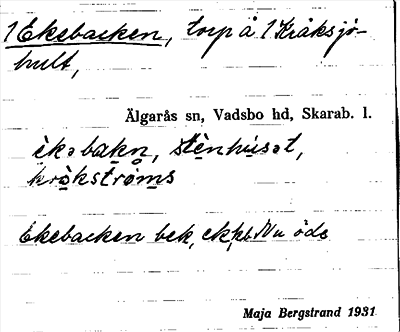 1 Ekebacken, torp å 1 Kråksjö-
hult,
Älgarås sn, Vadsbo hd, Skarab. l.
èkəbakn, stènhúsət,
kròkstrøms
Ekebacken bek, ekpl. Nu öde
Maja Bergstrand 1931